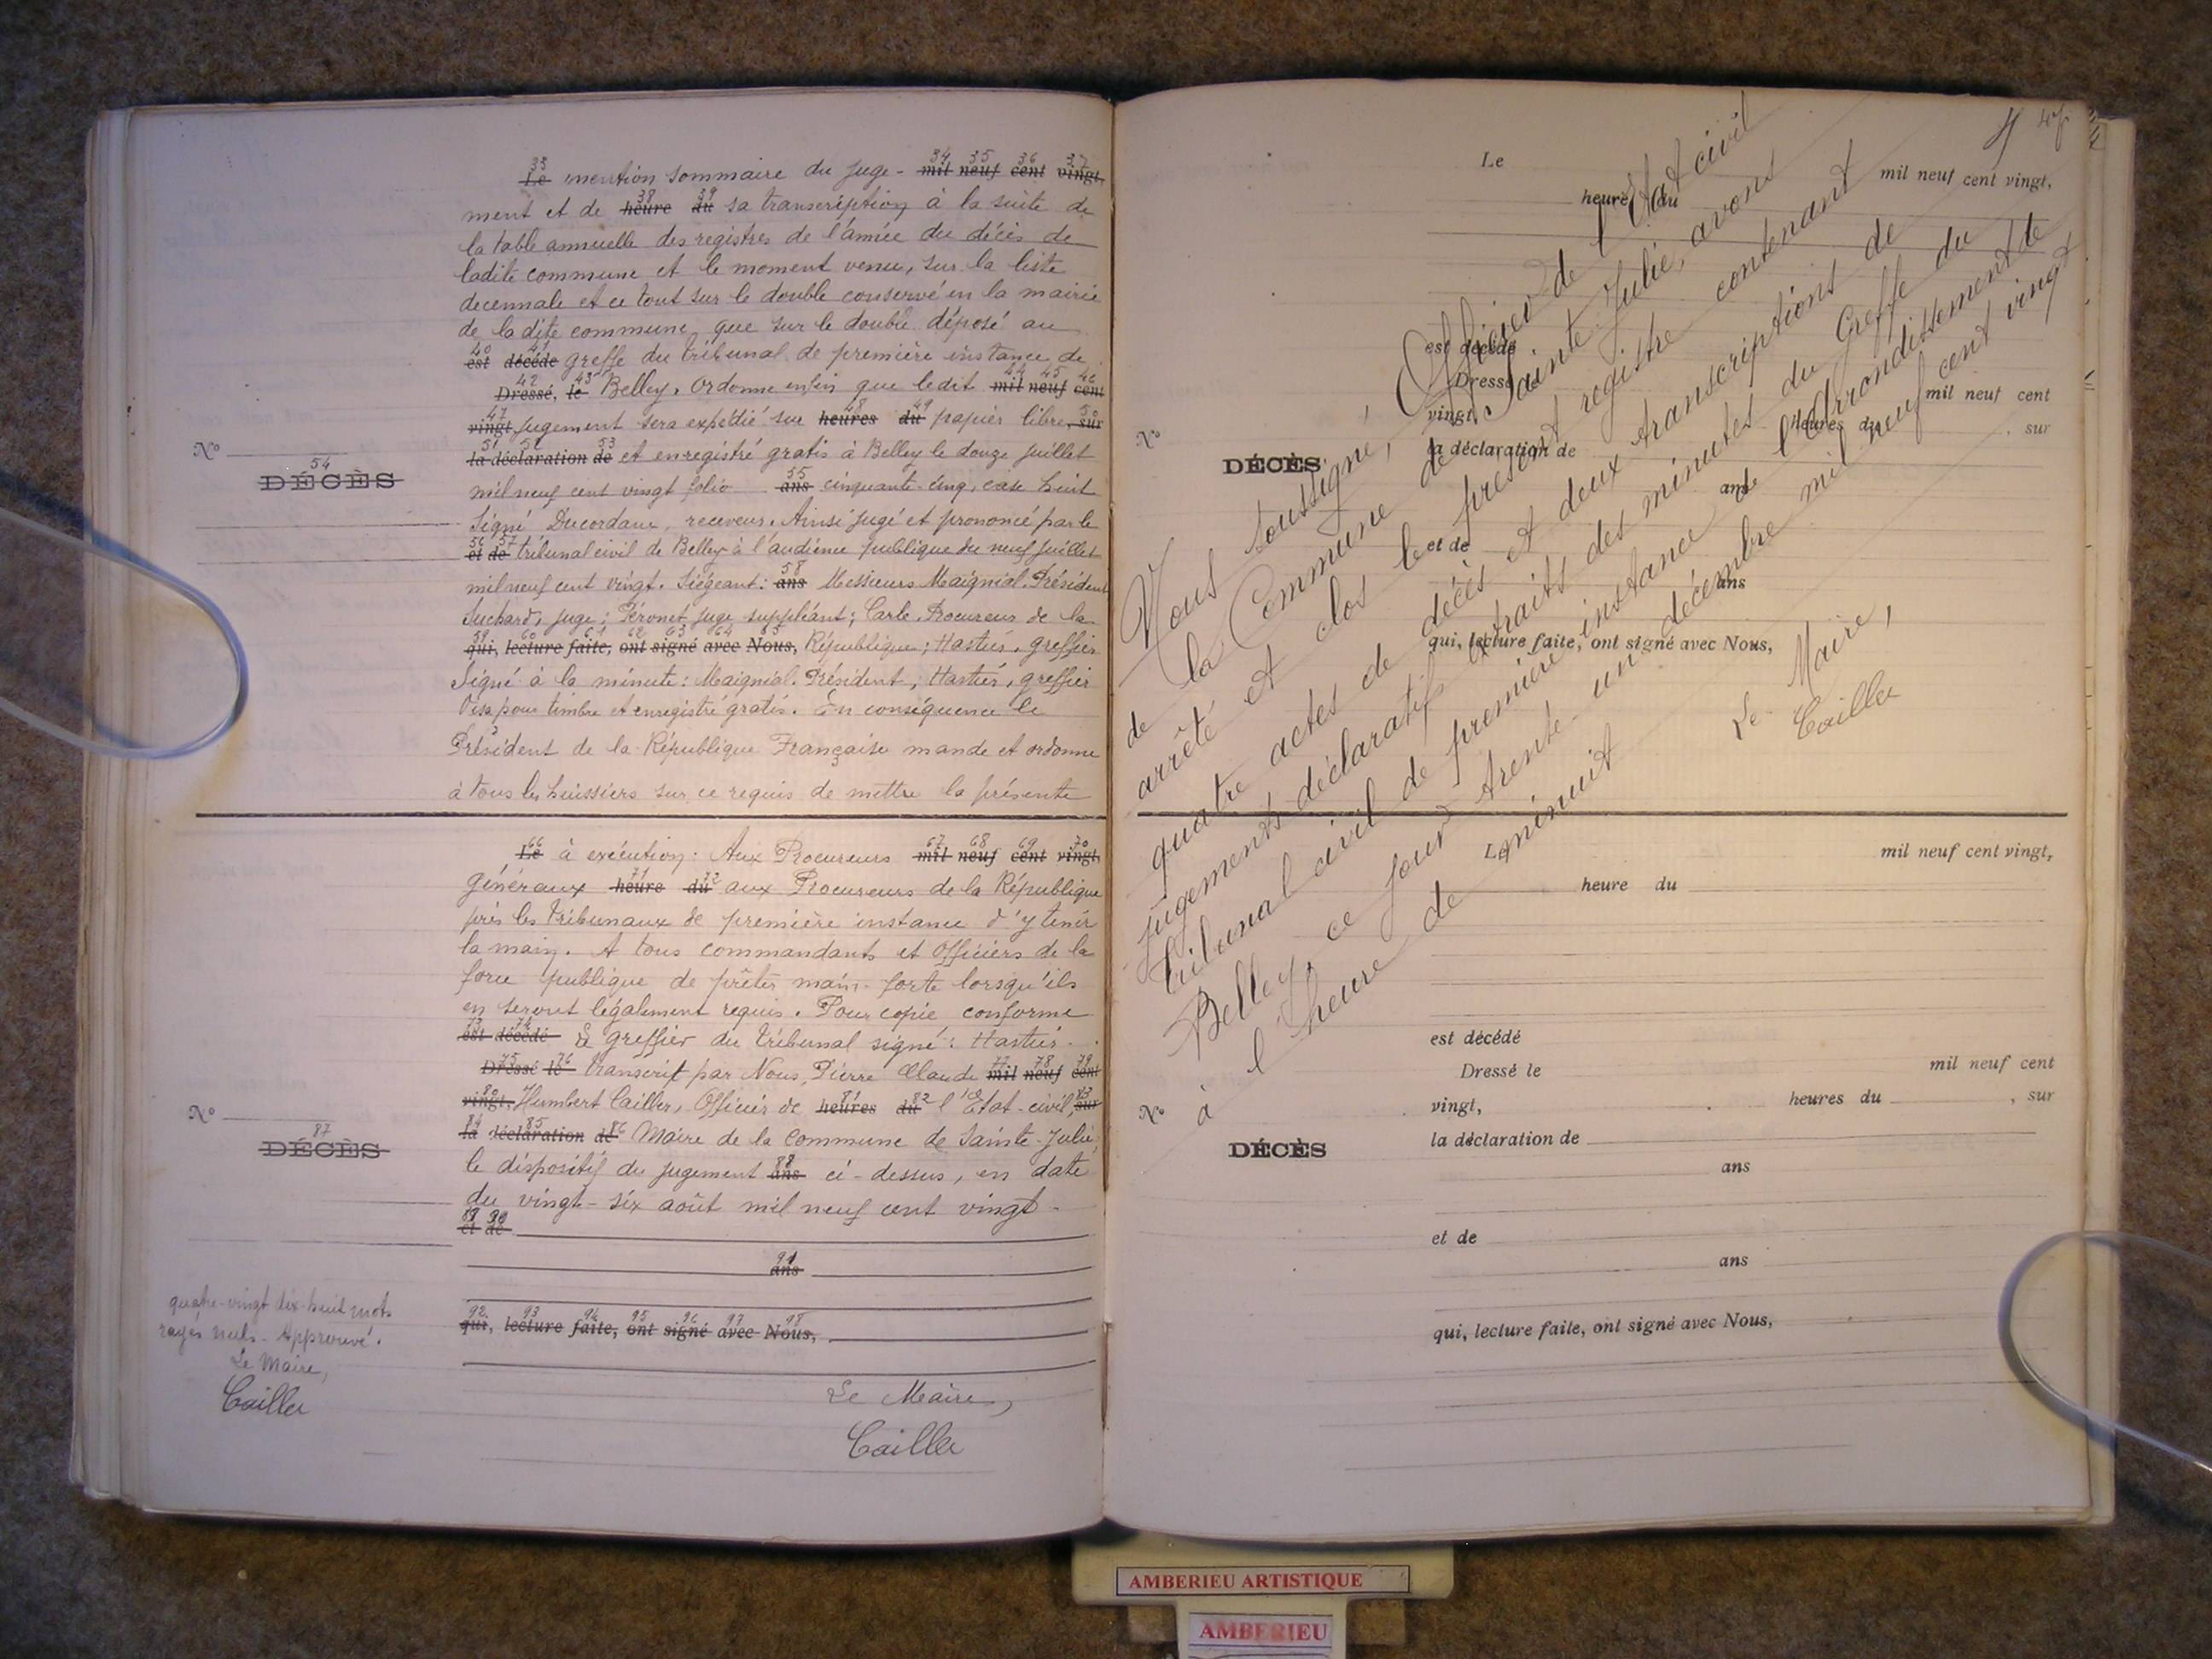 33 34 35 36 37
Le mention sommaire du juge- mil neuf cent vingt,
38 39
ment et de heure du sa transcription à la suite de
la table annuelle des registres de l'année du décès de
ladite commune et le moment venu, sur la liste
decennale et ce tout sur le double conservé en la mairie
de la dite commune, que sur le double déposé au
40 41
est décédé greffe du tribunal de première instance de
42 43 44 45 46
Dressé, le Belley. Ordonne enfin que ledit mil neuf cent
47 48 49 50
vingt jugement sera expédié sur heures du papier libre, sur
51 52 53
la déclaration de et enregistré gratis à Belley le douze juillet
55
mil neuf cent vingt folio ans cinquante-cinq, case huit
Signé Ducordaux, receveur. Ainsi jugé et prononcé par le
56 57
et de tribunal civil de Belley à l'audience publique du neuf juillet
58
mil neuf cent vingt. Siégeant: ans Messieurs Maignial, Président
Suchard, juge; Péronet juge suppléant; Carle, Procureur de la
59 60 61 62 63 64 65
qui, lecture faite, ont signé avec Nous, République; Hastier, greffier
Signé à la minute: Maignial, Président, Hastier, greffier
Visa pour timbre et enregistré gratis. En conséquence le
Président de la République Française mande et ordonne
à tous les huissiers sur ce requis de mettre la présente
No
54
DÉCÈS
66 67 68 69 70
Le à exécution: Aux Procureurs mil neuf cent vingt,
71 72
généraux heure du aux Procureurs de la République
près les tribunaux de première instance d'y tenir
la main. A tous commandants et Officiers de la
force publique de prêter main-forte lorsqu'ils
en seront légalement requis. Pour copie conforme
73 74
est décédé Le greffier du tribunal signé: Hastier.
75 76 77 78 79
Dressé le transcrit par Nous, Pierre Claude mil neuf cent
80 81 82 83
vingt, Humbert Cailler, Officier de heures du l'Etat-civil, sur
84 85 86
la déclaration de Maire de la commune de Sainte-Julie,
88
le dispositif du jugement ans ci-dessus, en date
du vingt-six août mil neuf cent vingt-
89 90
et de
91
ans
92 93 94 95 96 97 98
qui, lecture faite, ont signé avec Nous,
Le Maire,
Cailler
No
87
DÉCÈS
quatre-vingt dix-huit mots
rayés nuls. Approuvé.
Le Maire,
Cailler
47
Nous soussigné, Officier de l'Etat civil
de la Commune de Sainte-Julie, avons
arrêté et clos le présent registre contenant
quatre actes de décès et deux transcriptions de
jugements déclaratifs extraits des minutes du Greffe du
tribunal civil de première instance de l'Arrondissement de
Belley, ce jour trente-un décembre mil neuf cent vingt
à l'heure de minuit
Le Maire,
Cailler
Le
mil neuf cent vingt,
heure du
est décédé
Dressé le
mil neuf cent
vingt,
heures du , sur
No
DÉCÈS
la déclaration de
ans
et de
ans
qui, lecture faite, ont signé avec Nous,
Le
mil neuf cent vingt,
heure du
est décédé
Dressé le
mil neuf cent
vingt,
heures du , sur
No
DÉCÈS
la déclaration de
ans
et de
ans
qui, lecture faite, ont signé avec Nous,
AMBERIEU ARTISTIQUE
AMBERIEU